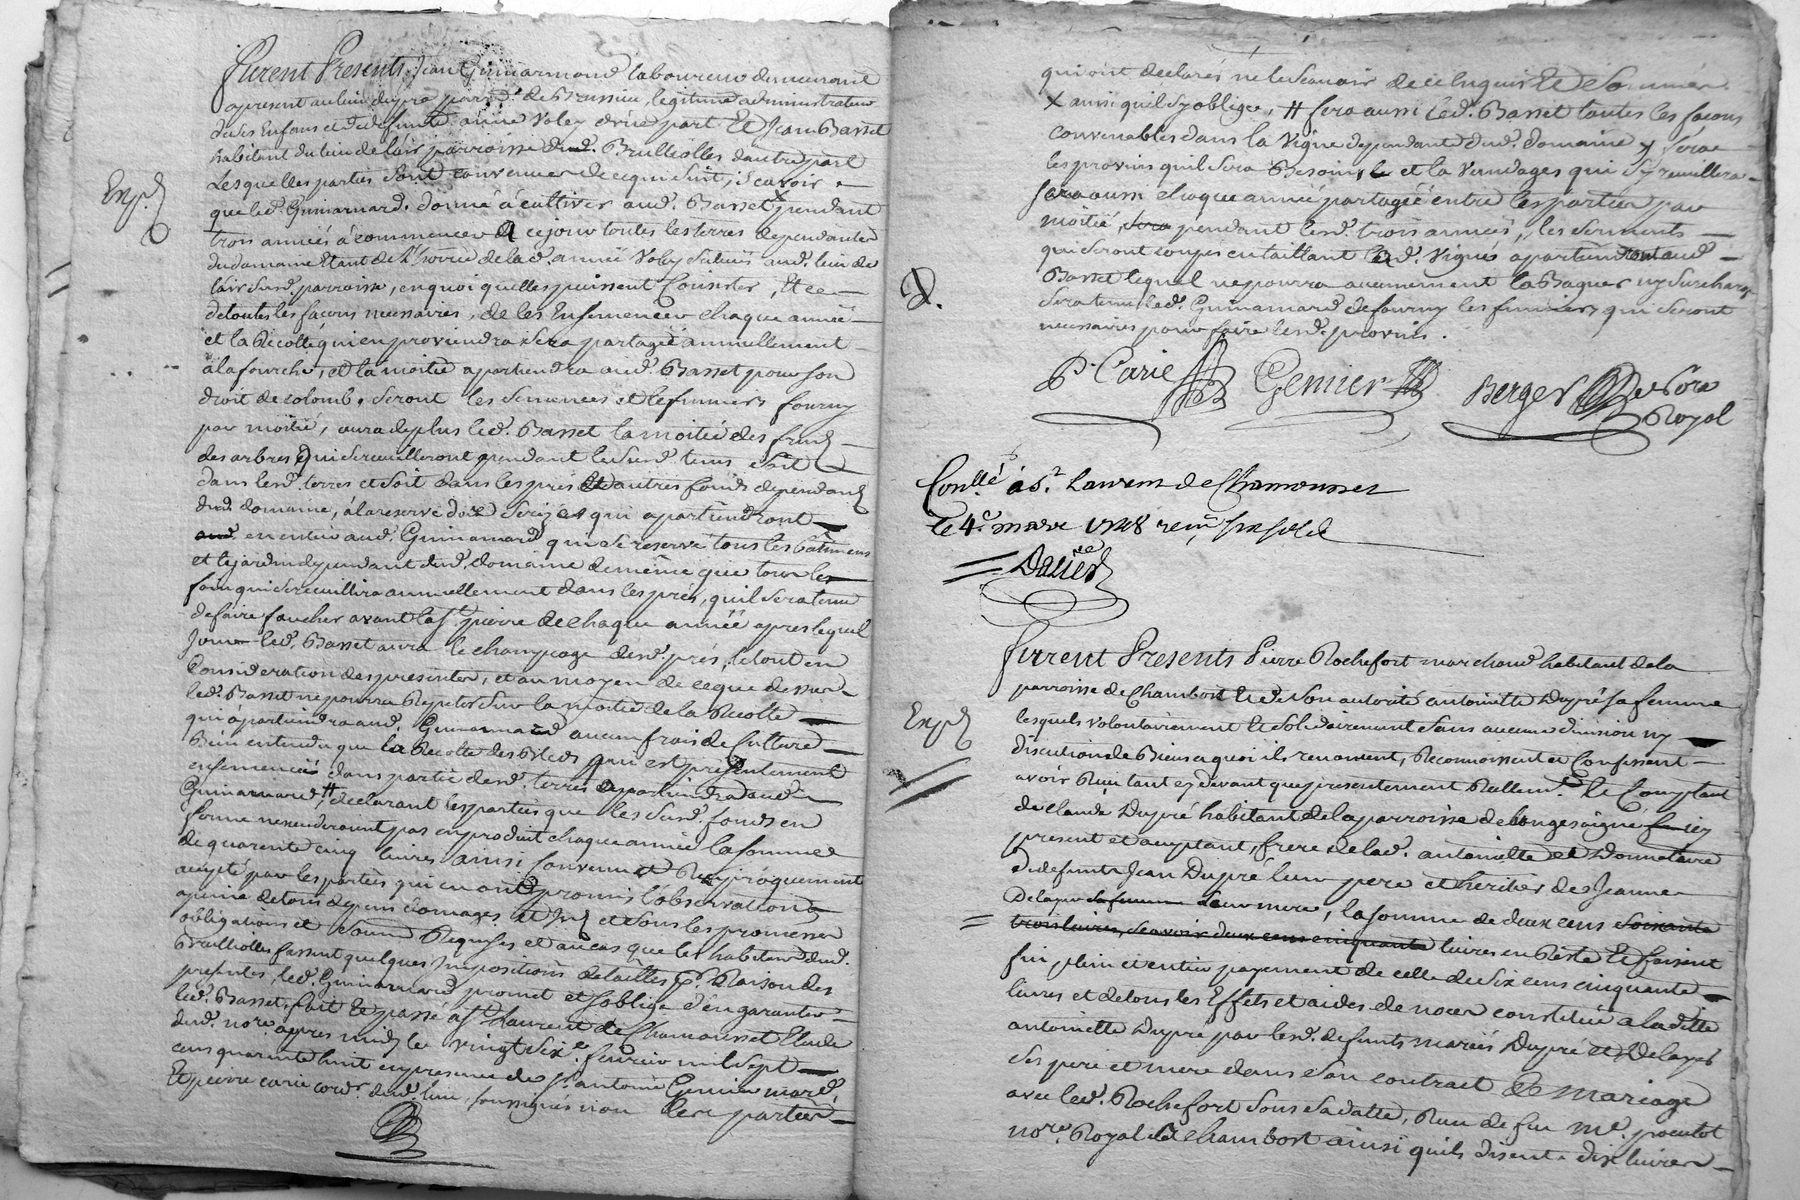 Furent Presents Jean Guinarmand laboureur demeurant
apresent au lieu dupra parr. de Brussieu, legitime administrateur
de ses Enfans et de defunte anne Voley d'vne part Et Jean Basset
habitant du lieu de lair parroisse dud. Brullioles dautre part
Lesquelles parties sont convenues de ce qui suit, scavoir
que led. Guinarmard. donne à cultiver aud. Basset x pendant
Exp.
trois années à commencer a ce jour toutes les terres dependantes
du domaine Etant de l'hoirie de lad. anne Voley situés aud. lieu de
lair susd. parroisse, en quoi quelles puissent Consister, Et ce
de toutes les façons necessaires, de les Ensemencer chaque année
et la Recolte qui en proviendra sera partagée annuellement
a la fourche, et la moitié apartiendra aud. Basset pour son
droit de colomb, seront les semences et le fumiers fourny
par moitié, aura de plus led. Basset la moitié des fruits
des arbres qui se recuilleront pendant le susd. tems soit
dans lesd. terres et soit dans les prés et autres fonds dependants
dud. domaine, à la reserve de seize qui apartiendront
aud. en entier aud. Guinarmard qui se reserve tous les bâtimens
et le jardin dependant dud. domaine de même que tous les
foin qui se recuillira annuellement dans les prés, qu'il sera tenu
de faire faucher avant la St. pierre de chaque année apres lequel
jour led. Basset aura le champeage desd. prés, le tout en
Consideration des presentes, et au moyen de ce que dessus
led. Basset ne pourra Repeter sur la moitié de la Recolte
qui apartiendra aud. Guinarmard aucun frais de Culture
Bien entendu que la Recolte des Bleds qui est presentement
ensemencée dans partie desd. terres apartiendra aud.
Guinarmard, # declarant les parties que les susd. fonds en
ferme ne rendroient pas en produit chaque année la somme
de quarente cinq livres ainsi Convenu et Reciproquement
acepté par les parties qui en ont promis l'observation
a peine de tous depens domages et Int. et sous les promesses
obligations et soum. Requises et au cas que les habitans dud.
Brullioles fassent quelques impositions de tailles p. Raison des
presentes, led. Guinarmard promet et s'oblige d'en garantir
led. Basset, fait Et passé a St. Laurent de Chamousset Etude
dud. nore. apres midy le vingt sixe. fevrier mil sept
cens quarante huit en presence de sr. antoine Genier mard.
Et pierre carie cordr. dud. lieu, soussignés non les parties
qui ont declarés ne le scavoir de ce Enquis Et Sommés
x ainsi qu'il s'y oblige, # fera aussi led. Basset toutes les façons
convenables dans la vigne dependante dud. domaine y fera
les provins qu'il sera Besoin, et la vendages qui s'y recuillera
sera aussi chaque année partagée entre les parties par
moitié, pendant lesd. trois années, les serments
qui seront coupés en taillant lad. vignes apartiendront aud.
Basset lequel ne pourra aucunement la Baguer ny surcharger
sera tenu led. Guinarmard de fourny les fumiers qui seront
necessaires pour faire lesd. provins.
P. Carie Genier Berger Nore
Royal
Conllé. à St. Laurens de Chamousset
le 4e. mars 1748 reçu six sols
Dalier
Furent Presents Pierre Rochefort marchand habitant de la
parroisse de Chambost Et de son autorité antoinette Dupré sa femme
Exp.
lesquels volontairement Et solidairement sans aucune division ny
discution de Biens a quoi ils renoncent, Reconnoissent et Confessent
avoir Reçu tant cy devant que presentement Rellemt. Et Comptant
de claude Dupré habitant de la parroisse de longesaigne icy
present et aceptant, frere de lad. antoinette et Donnataire
de defunt Jean Dupré leur pere et héritier de Jeanne
Delaye sa femme leur mere, la somme de deux cens soixante
trois livres, scavoir deux cens cinquante livres en Reste Et faisant
fin plein et entier payement de celle de six cens cinquante
livres et de tous les Effets et aides de noces constitué a ladite
antoinette Dupré par lesd. defunts mariés Dupré et Delaye
ses pere et mere dans son contrait de mariage
avec led. Rochefort sous sa datte, Reçu de feu me. ponchot
nore. Royal a Chambost ainsi qu'ils disent, dix livres